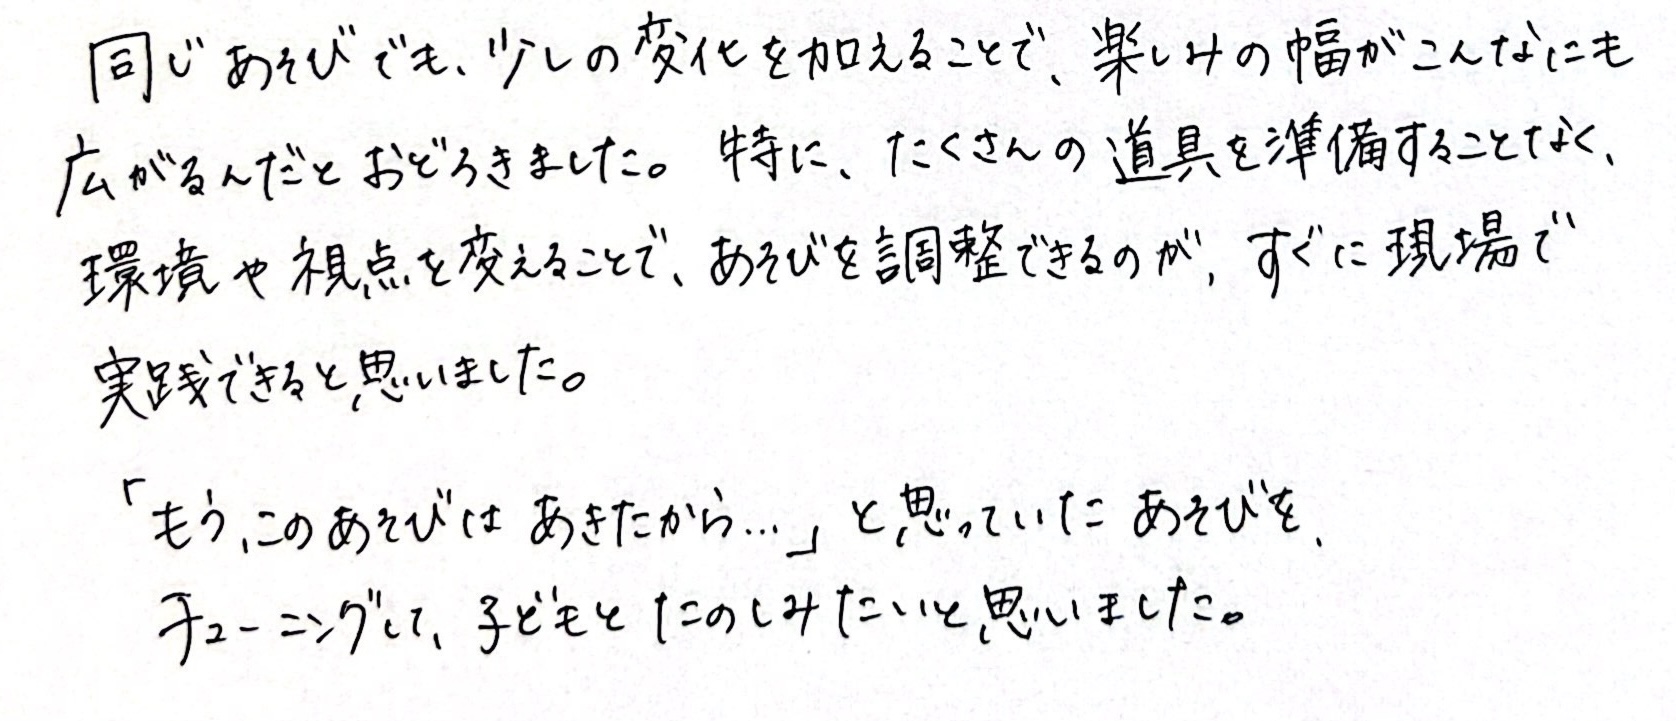 同じあそびでも、少しの変化を加えることで、楽しみの幅がこんなにも
広がるんだとおどろきました。特に、たくさんの道具を準備することなく、
環境や視点を変えることで、あそびを調整できるのが、すぐに現場で
実践できると思いました。
「もう、このあそびは あきたから…」と思っていた あそびを、
チューニングして、子どもと たのしみたいと思いました。